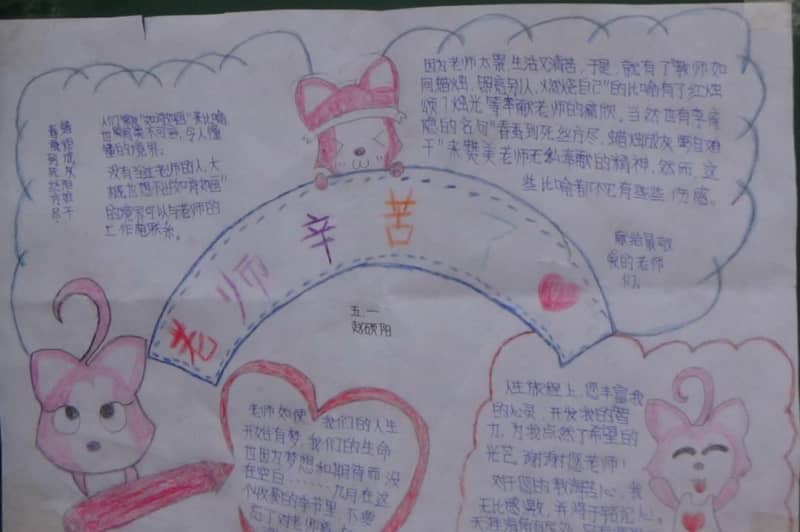 春蚕到死丝方尽
蜡炬成灰泪始干
人们常以"如诗如画"来比喻
世间最美不可言，令人憧
憬的境界。
没有当过老师的人，大
概也想不出"如诗如画"
的境界可以与老师的
工作有联系。
因为老师太累，生活又清苦，于是，就有了"教师如
同蜡烛，照亮别人，燃烧自己"的比喻有了红烛
颂了烛光等奉献老师的篇
当然也有李商
隐的名句"春蚕到死丝方尽，蜡烛成灰泪始
干"来赞美老师无私奉献的精神，然而，这
些比喻都不乏有些些伤感。
献给最敬
爱的老师
们。
老师辛苦了
五.一
老师如使
我们的人生
开始有梦，我们的生命
也因为梦想和期待而没
在空白……九月在这
个收获的季节里，不要
忘了对老师
人生旅程上，您丰富我
的心灵，开发我的智
力，为我点燃了希望的
光芒，谢谢您，老师！
对于您的教诲苦心，我
无比感激，并将于铭记心。